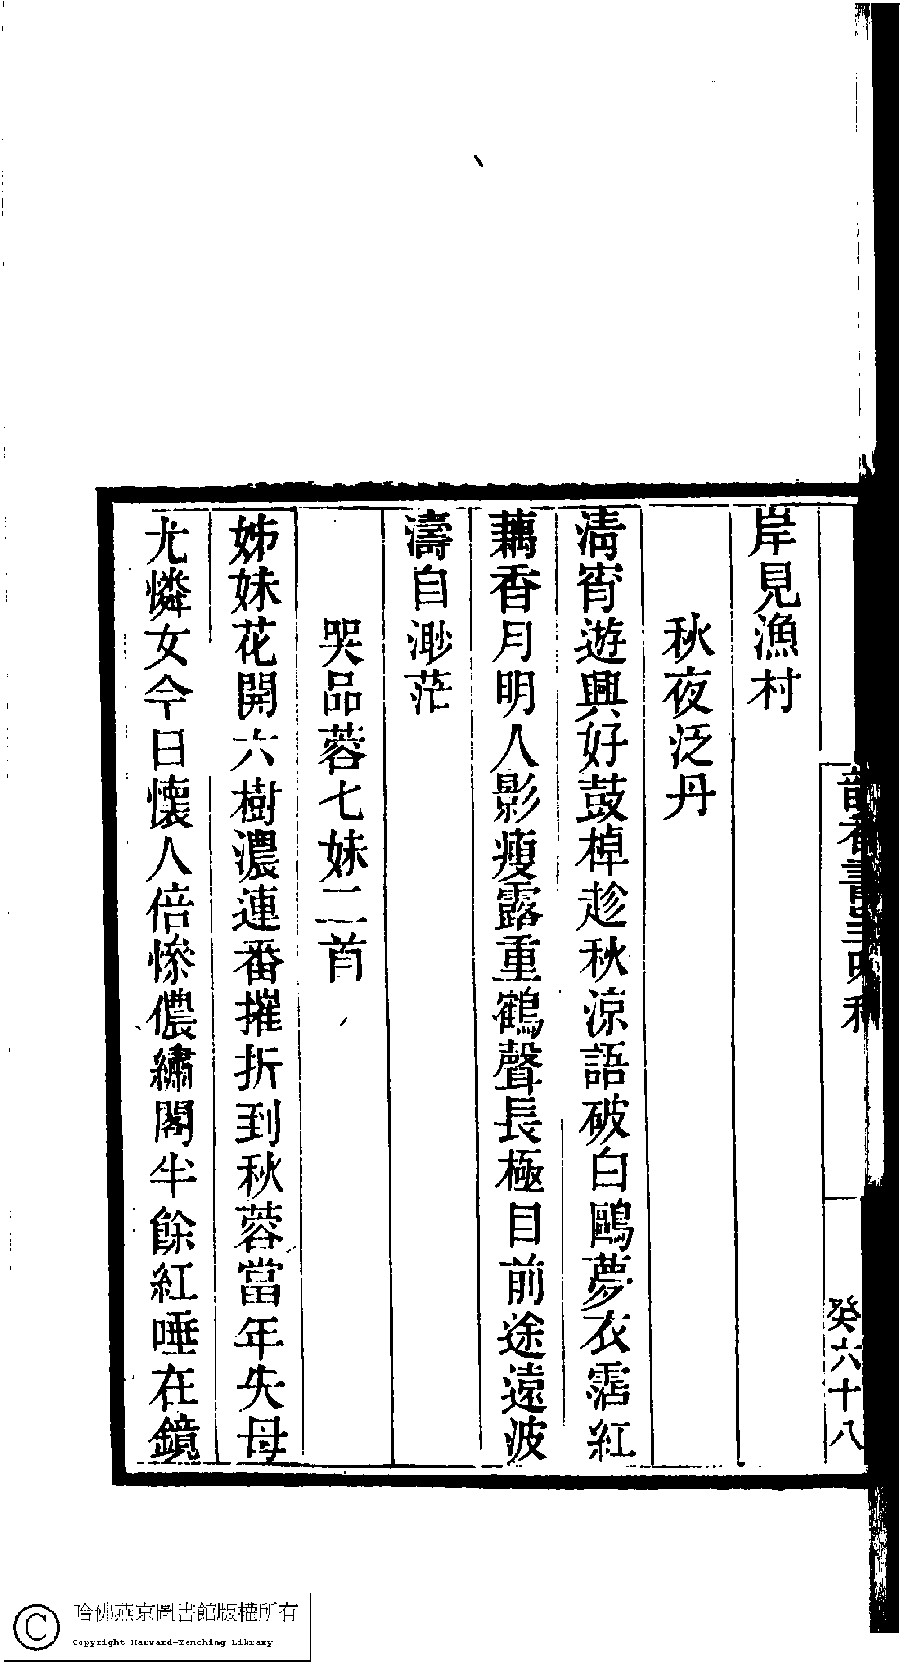 岸見漁村
秋夜泛丹
清宵遊興好鼓棹趁秋涼語破白鷗夢衣霑紅
藕香月明人影瘦露重鶴聲長極目前途遠波
濤自渺茫
哭品蓉七妹二首
姊妹花開六樹濃連番摧折到秋蓉當年失母
尤憐女今日懷人倍慘儂繡閣半餘紅唾在鏡
癸六十八
哈佛燕京圖書館版權所有
Copyright Harvard-Yenching Library